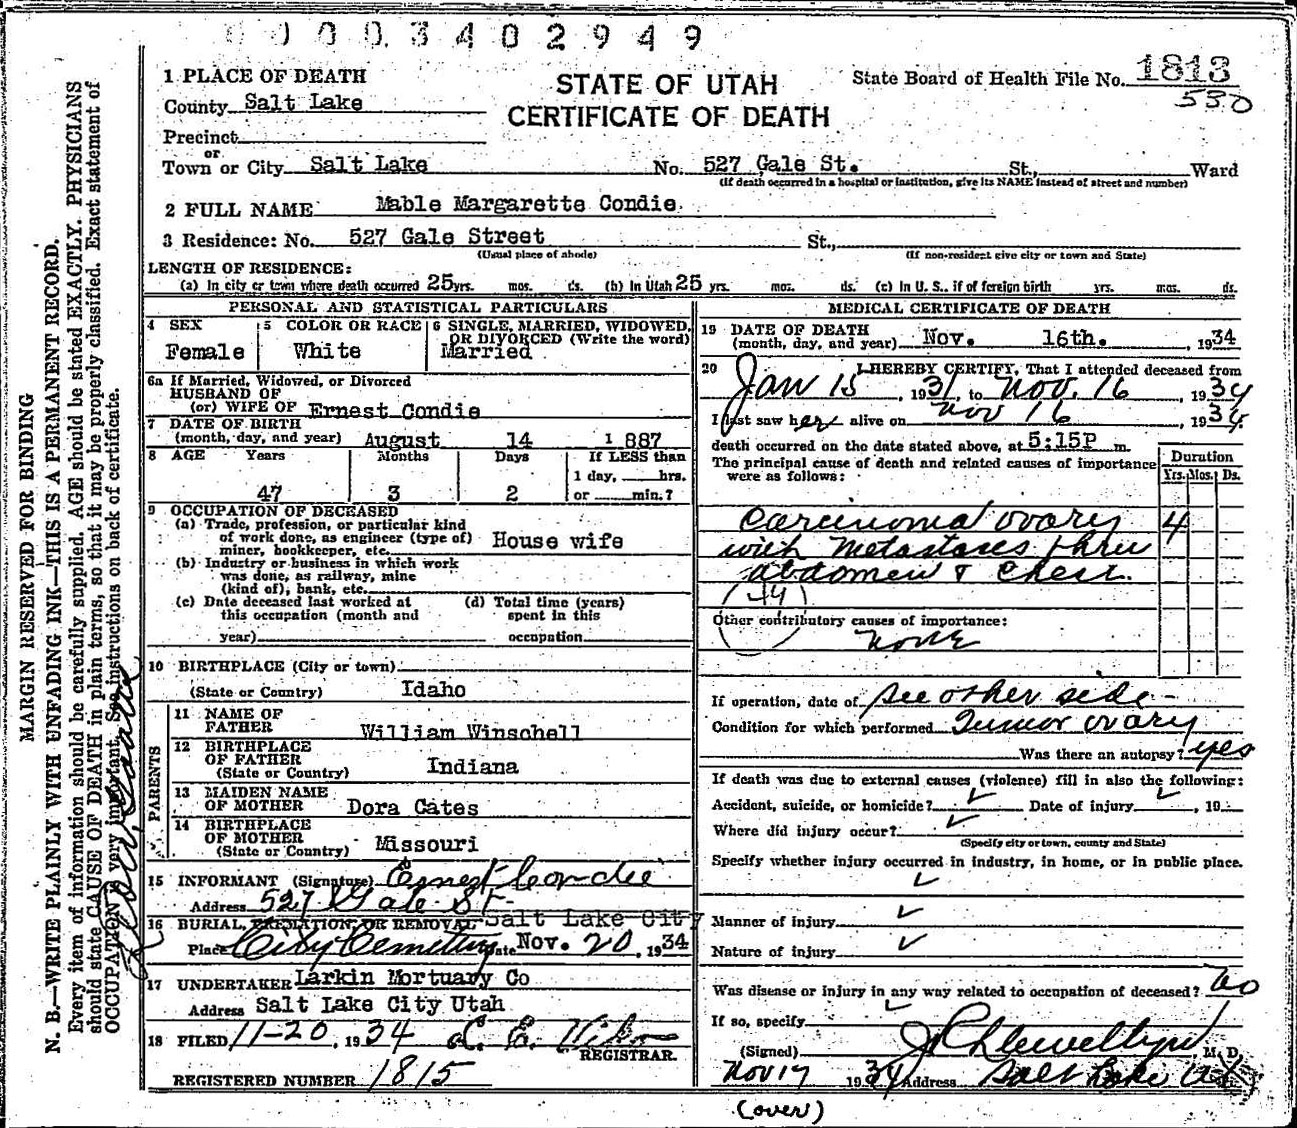 0 0 0 0 3 4 0 2 9 4 9
STATE OF UTAH
CERTIFICATE OF DEATH
State Board of Health File No. 1813
530
1 PLACE OF DEATH
County Salt Lake
Precinct
or
Town or City Salt Lake No. 527 Gale St. St., Ward
(If death occurred in a hospital or institution, give its NAME instead of street and number)
2 FULL NAME Mable Margarette Condie.
3 Residence: No. 527 Gale Street St.,
(Usual place of abode) (If non-resident give city or town and State)
LENGTH OF RESIDENCE:
(a) In city or town where death occurred 25 yrs. mos. ds. (b) In Utah 25 yrs. mos. ds. (c) In U. S., if of foreign birth yrs. mos. ds.
PERSONAL AND STATISTICAL PARTICULARS
4 SEX Female
5 COLOR OR RACE White
6 SINGLE, MARRIED, WIDOWED, OR DIVORCED (Write the word) Married
6a If Married, Widowed, or Divorced
HUSBAND OF
(or) WIFE OF Ernest Condie
7 DATE OF BIRTH
(month, day, and year) August 14 1 887
8 AGE Years Months Days If LESS than
1 day, hrs.
47 3 2 or min.?
9 OCCUPATION OF DECEASED
(a) Trade, profession, or particular kind
of work done, as engineer (type of)
miner, bookkeeper, etc. House wife
(b) Industry or business in which work
was done, as railway, mine
(kind of), bank, etc.
(c) Date deceased last worked at (d) Total time (years)
this occupation (month and spent in this
year) occupation
10 BIRTHPLACE (City or town)
(State or Country) Idaho
PARENTS
11 NAME OF
FATHER William Winschell
12 BIRTHPLACE
OF FATHER
(State or Country) Indiana
13 MAIDEN NAME
OF MOTHER Dora Cates
14 BIRTHPLACE
OF MOTHER
(State or Country) Missouri
15 INFORMANT (Signature) Ernest Condie
Address 527 Gale St-
16 BURIAL, CREMATION, OR REMOVAL Salt Lake City
Place City Cemetery Date Nov. 20, 1934
17 UNDERTAKER Larkin Mortuary Co
Address Salt Lake City Utah
18 FILED 11-20, 1934
REGISTRAR.
REGISTERED NUMBER 1815
MEDICAL CERTIFICATE OF DEATH
19 DATE OF DEATH
(month, day, and year) Nov. 16th. , 1934
20 I HEREBY CERTIFY, That I attended deceased from
Jan 15, 1931, to Nov. 16, 1934
I last saw her alive on Nov 16, 1934
death occurred on the date stated above, at 5:15P m.
The principal cause of death and related causes of importance
were as follows:
Duration
Yrs. Mos. Ds.
Carcinoma ovary 4
with Metastases thru
abdomen & Chest.
Other contributory causes of importance:
none
If operation, date of see other side-
Condition for which performed Tumor ovary
Was there an autopsy? yes
If death was due to external causes (violence) fill in also the following:
Accident, suicide, or homicide? Date of injury , 19
Where did injury occur?
(Specify city or town, county and State)
Specify whether injury occurred in industry, in home, or in public place.
Manner of injury
Nature of injury
Was disease or injury in any way related to occupation of deceased? no
If so, specify
(Signed) J P Llewellyn, M. D.
Nov 17 1934 Address Salt Lake Ut
(over)
MARGIN RESERVED FOR BINDING
N. B.—WRITE PLAINLY WITH UNFADING INK—THIS IS A PERMANENT RECORD.
Every item of information should be carefully supplied. AGE should be stated EXACTLY. PHYSICIANS
should state CAUSE OF DEATH in plain terms, so that it may be properly classified. Exact statement of
OCCUPATION is very important. See instructions on back of certificate.